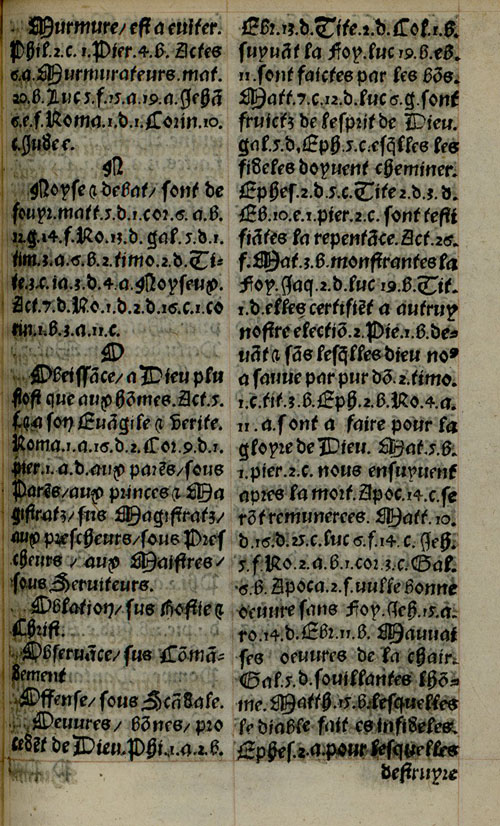 Murmure/ est a euiter.
Phil.2.c. 1.Pier.4.b. Actes
6.a. Murmurateurs. mat.
20.b. Luc 5.f.15.a.19.a. Jehã
6.e.f. Roma.1.d.1. Corin.10.
c. Jude c.
N
Noyse ⁊ debat/ sont de
fouyr. matt.5.d.1.cor.6.a.b.
12.g.14.f. Ro.13.d. gal.5.d.1.
tim.3.a.6.b.2.timo.2.d. Ti-
te.3.c. ia.3.d.4.a. Noyseux.
Act.7.d. Ro.1.d.2.d.16.c.1.co
rin.1.b.3.a.11.c.
O
Obeissãce/ a Dieu plu
stost que aux hõmes. Act.5.
f. ⁊ a son Euãgile ⁊ verite.
Roma.1.a.16.d.2. Cor.9.d.1.
pier.1.a.d. aux parẽs/ sous
Parẽs/ aux princes ⁊ Ma
gistratz/ sus Magistratz/
aux prescheurs/ sous Pres
cheurs / aux Maistres/
sous Seruiteurs.
Oblation/ sus Hostie ⁊
Christ.
Obseruãce/ sus Cõmã-
dement
Offense/ sous Scãdale.
Oeuures/ bõnes/ pro
cedẽt de Dieu. Phi.1.a.2.b.
Ebr.13.d. Tite.2.d. Col.1.b.
suyuãt la Foy. luc 19.b. eb.
11. sont faictes par les bõs.
Matt.7.c.12.d. luc 6.g. sont
fruictz de lesprit de Dieu.
gal.5.d. Eph.5.c. esq̃lles les
fideles doyuent cheminer.
Ephes.2.d.5.c. Tite 2.d.3.d.
Eb.10.e.1.pier.2.c. sont testi
fiãtes la repentãce. Act.26.
f. Mat.3.b. monstrantes la
Foy. Jaq.2.d. luc 19.b. Tit.
1.d. elles certifiẽt a autruy
nostre electiõ.2.Pie.1.b. de-
uãt ⁊ sãs lesq̃lles dieu noꝰ
a sauue par pur dõ.2.timo.
1.c. tit.3.b. Eph.2.b. Ro.4.a.
11.a. sont a faire pour la
gloyre de Dieu. Mat.5.b.
1.pier.2.c. nous ensuyuent
apres la mort. Apoc.14.c. se
rõt remunerees. Matt.10.
d.16.d.25.c. luc 6.f.14.c. Jeh.
5.f. Ro.2.a.b.1.cor.3.c. Gal.
6.b. Apoca.2.f. nulle bonne
oeuure sans Foy. Jeh.15.a.
ro.14.d. Ebr.11.b. Mauuai
ses oeuures de la chair.
Gal.5.d. souillantes lhõ-
me. Matth.15.b. lesquelles
le diable fait es infideles.
Ephes.2.a. pour lesquelles
destruyre